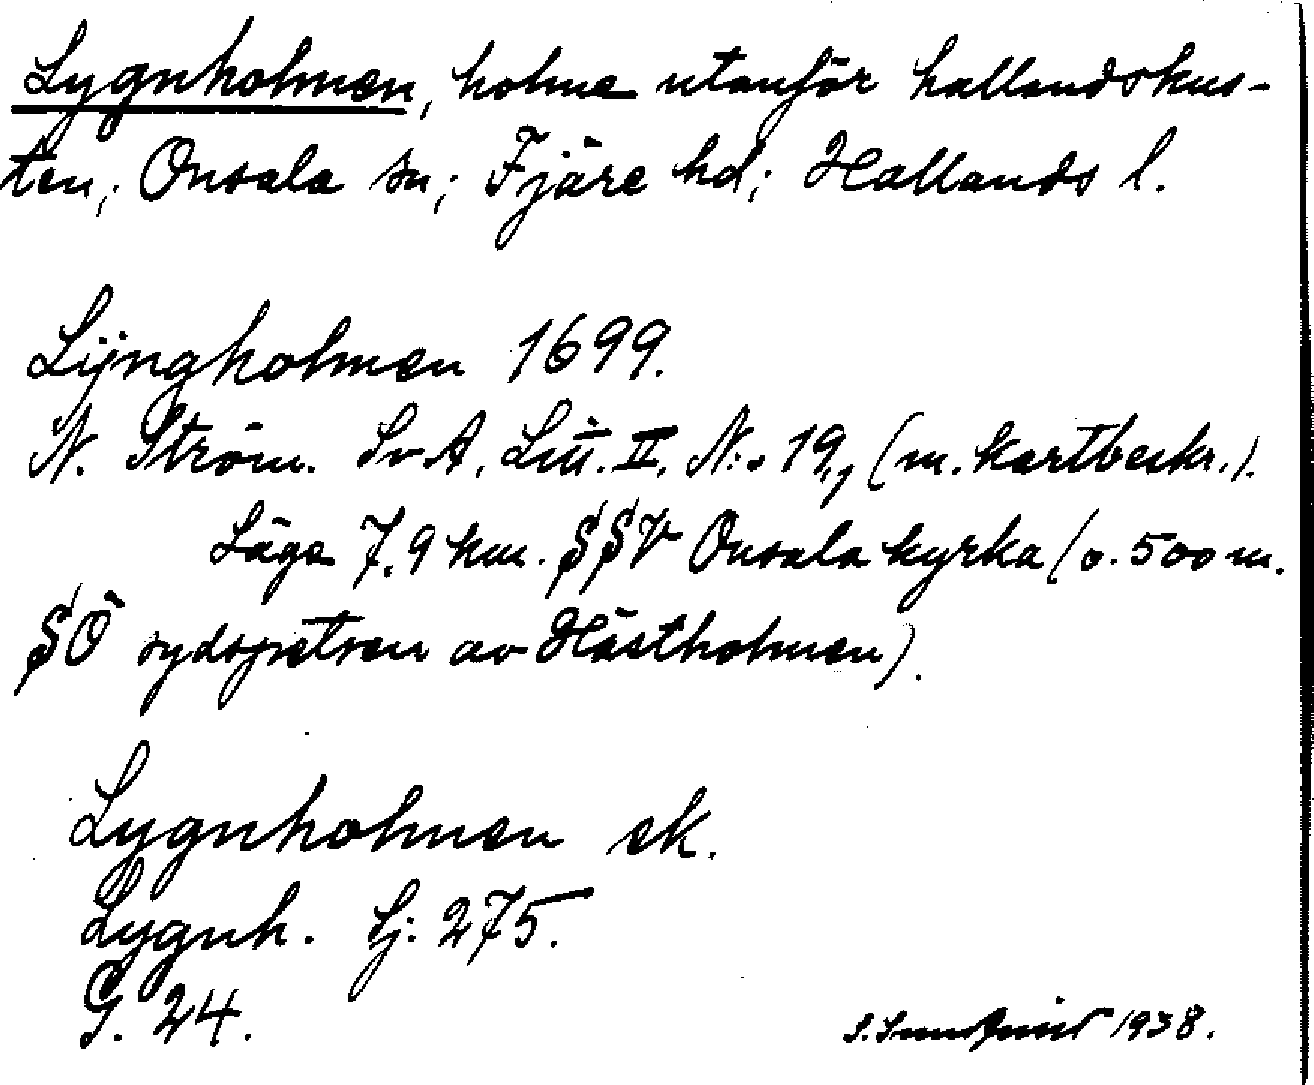 Lygnholmen, holme utanför hallandskus-
ten; Onsala sn; Fjäre hd; Hallands l.
Lÿngholmen 1699.
N. Ström. SvA, Litt. II. N:o 19, (m. kartbeskr.).
Läge 7.9 km. SSV Onsala kyrka (o. 500 m.
SÖ sydspetsen av Hästholmen).
Lygnholmen ek.
Lygnh. Sj: 275.
G. 24.
S. Sundqvist 1938.